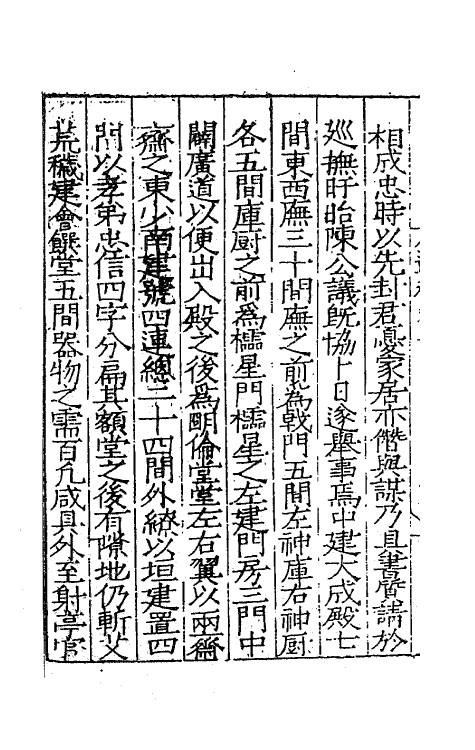 相成忠時以先封君憂家居亦僭與謀乃且書啓請於
廵撫盱眙陳公議旣協卜日遂舉事焉中建大成殿七
間東西廡三十間廡之前爲戟門五間左神庫右神厨
各五間庫厨之前爲櫺星門櫺星之左建門房三門中
闢廣道以便出入殿之後爲明倫堂堂左右翼以兩齋
齋之東少南建號四連總二十四間外繚以垣建置四
門以孝弟忠信四字分扁其額堂之後有隙地仍斬艾
荒穢建會饌堂五間器物之需百凡咸具外至射亭官